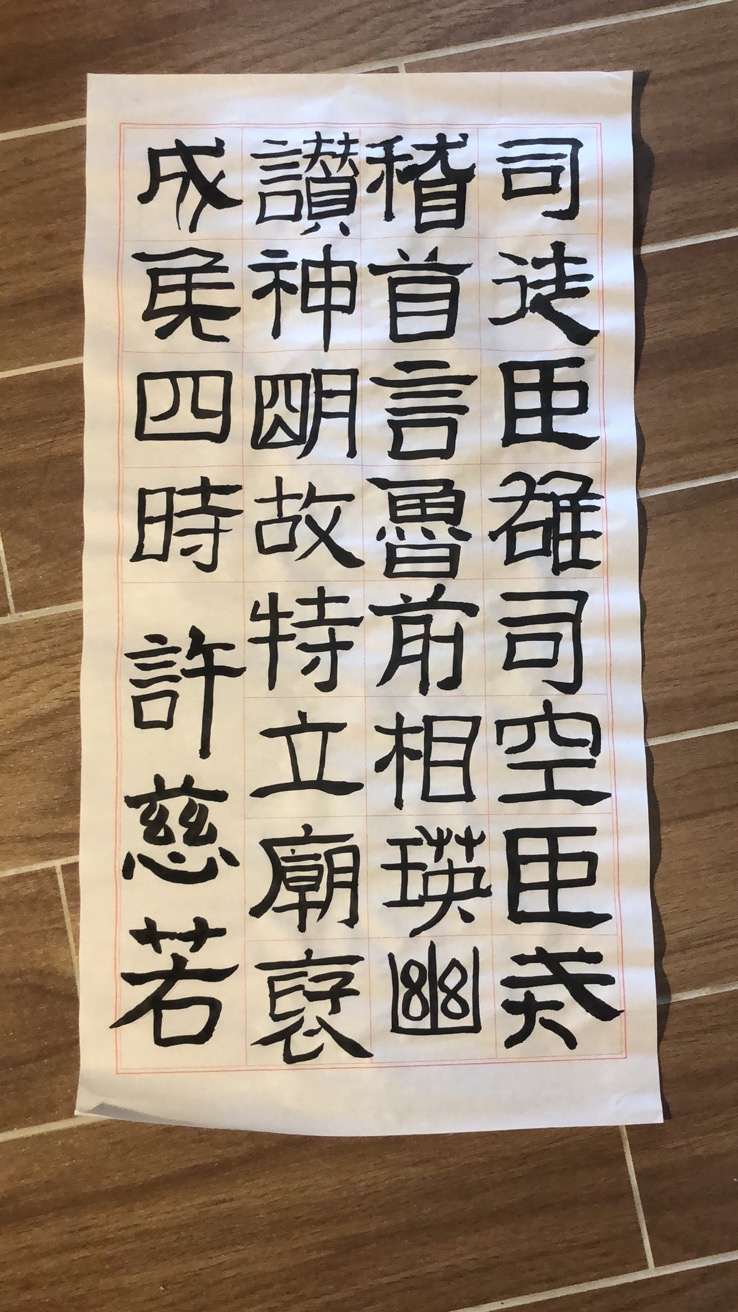 司徒臣雄司空臣戒
稽首言魯前相瑛幽
讃神朙故特立廟褒
成侯四時 許慈若